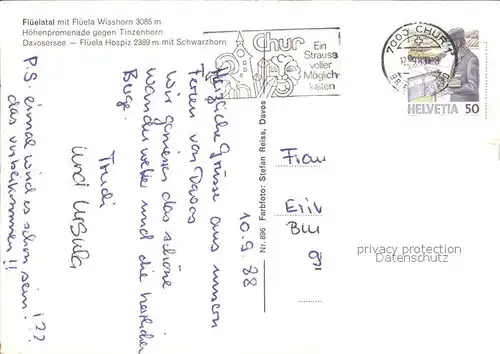 Flüelatal mit Flüela Wisshorn 3085 m
Höhenpromenade gegen Tinzenhorn
Davosersee – Flüela Hospiz 2389 m mit Schwarzhorn
Chur
Ein
Strauss
voller
Möglich-
keiten
7000 CHUR 1
HELVETIA 50
10.9.88
Herzliche Grüsse aus unseren
Ferien von Davos
Wir geniessen das schöne
Wanderwetter und die herrlichen
Berge.
Trudi
und Ursula
P.S. einmal wird es schon sein!
das vorbeikommen!!
Nr. 896 Farbfoto: Stefan Reiss, Davos
Frau
privacy protection
Datenschutz